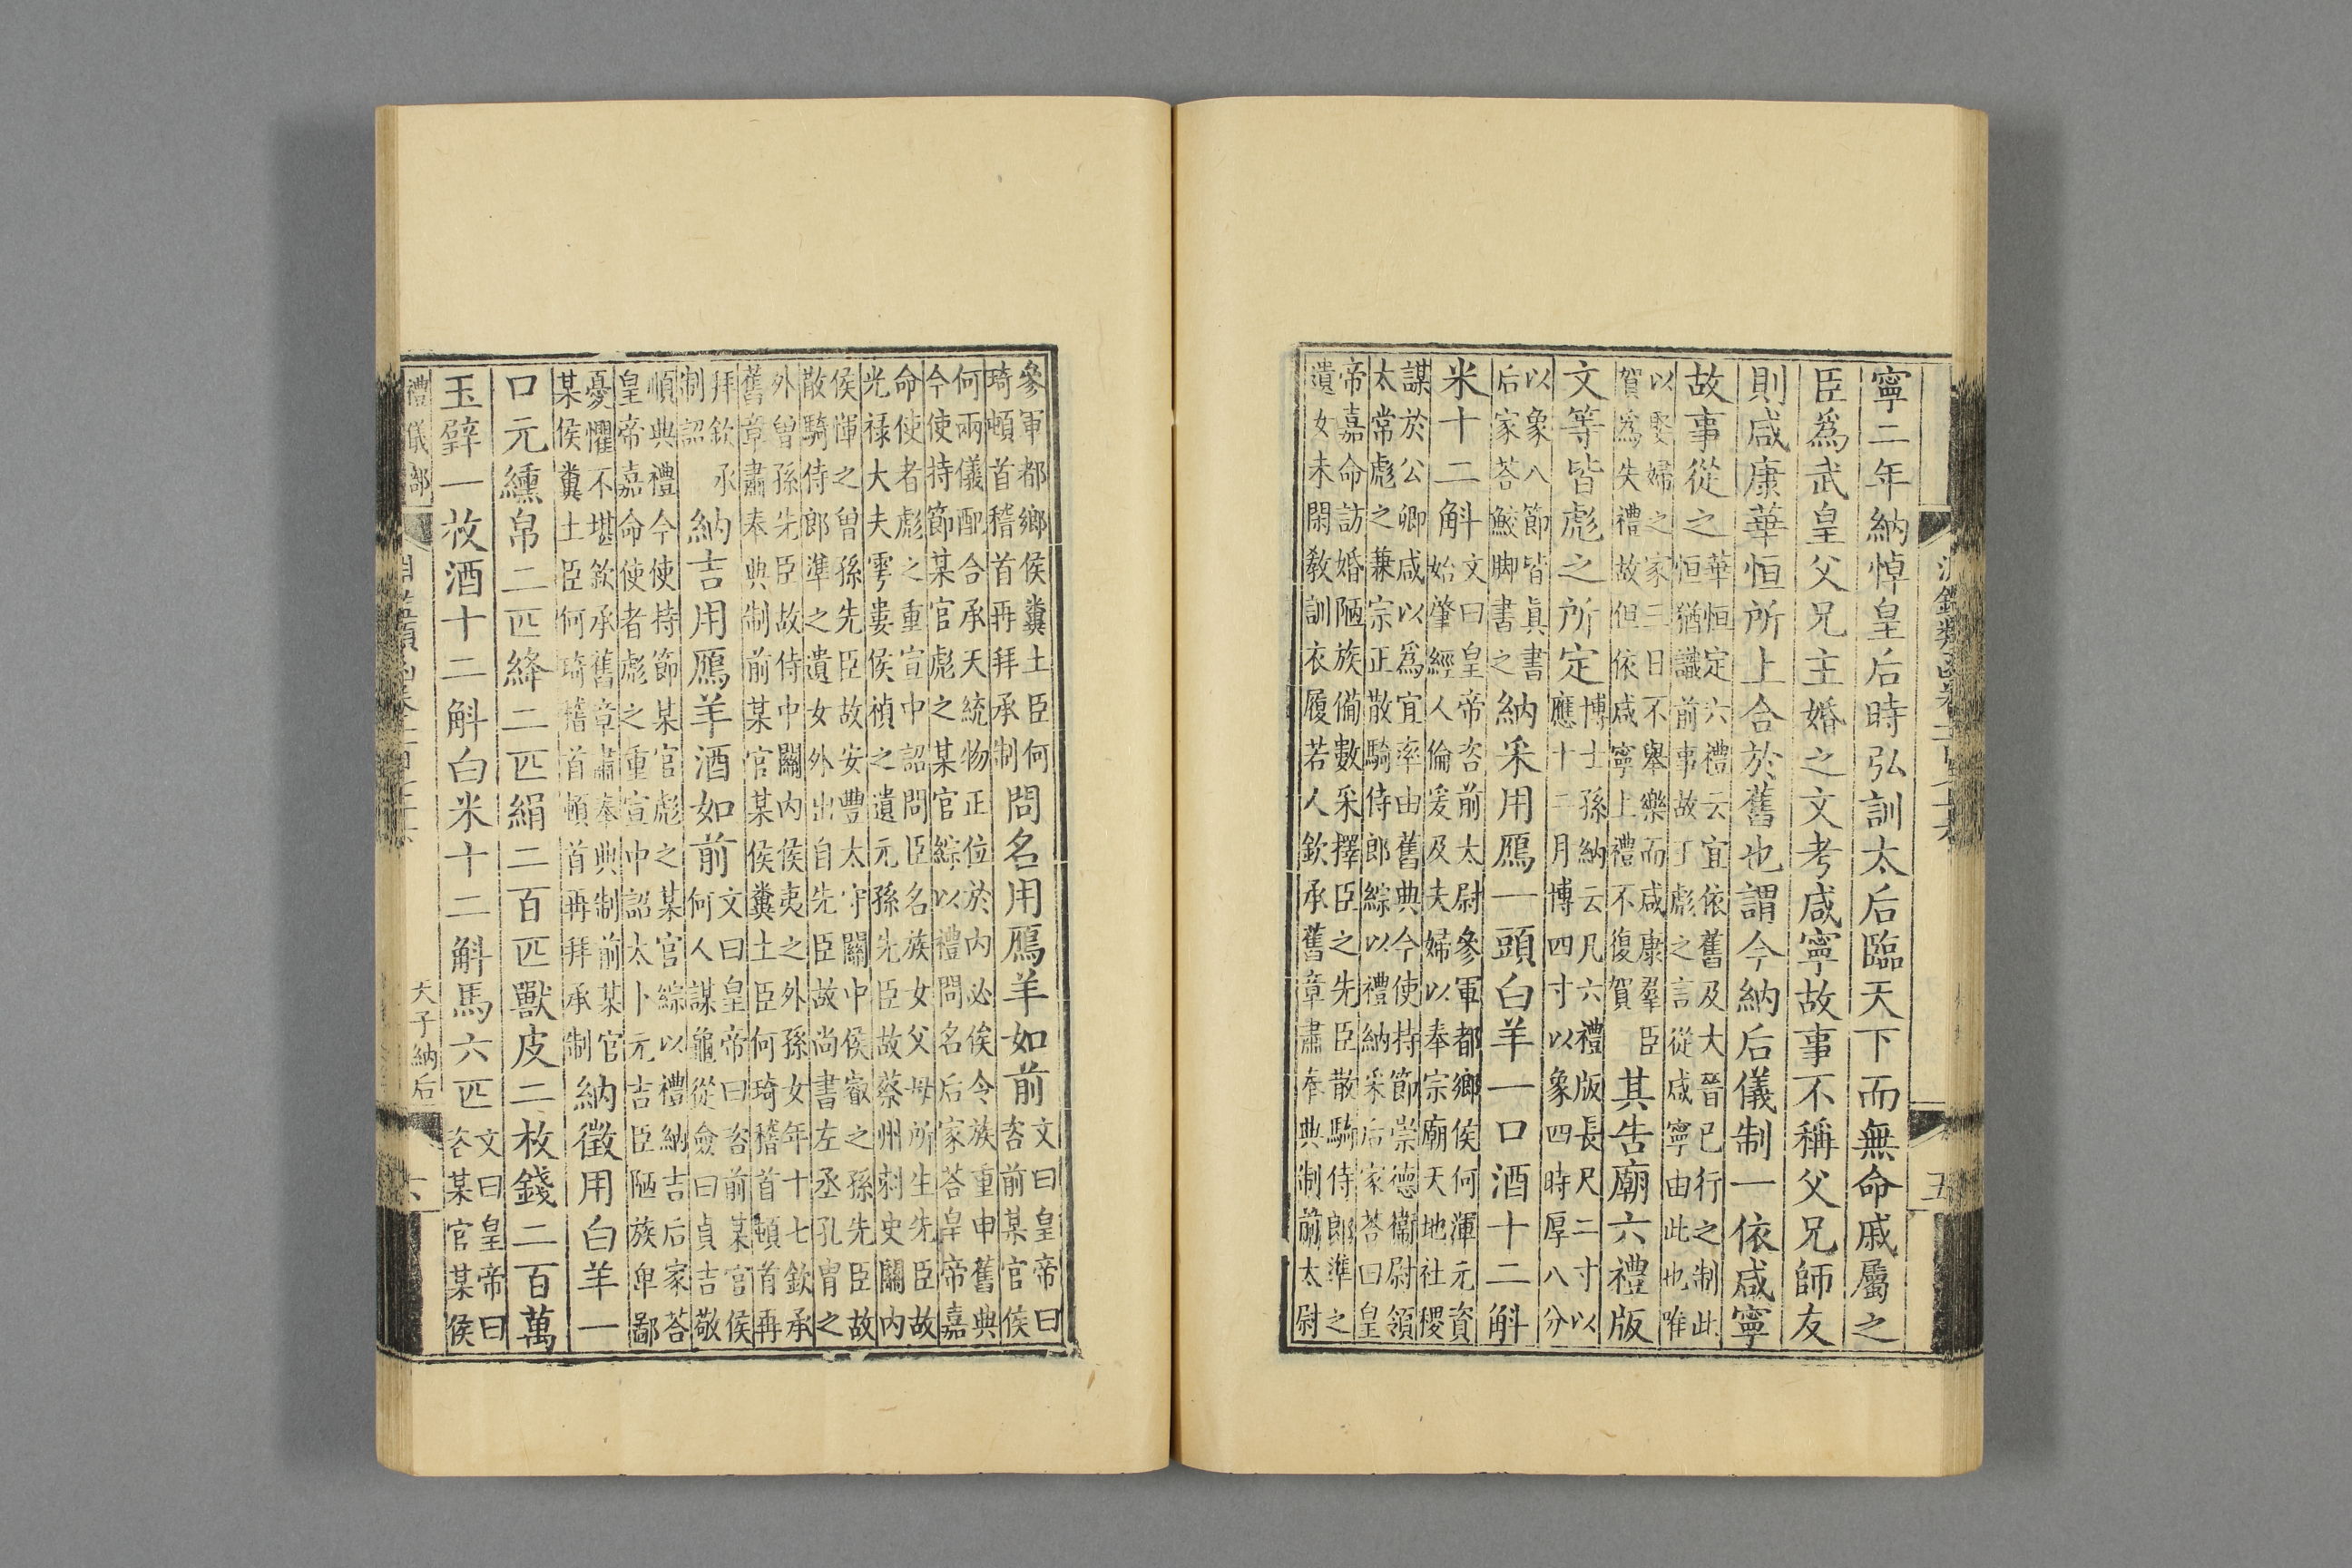 寧二年納悼皇后時弘訓太后臨天下而無命戚屬之
臣爲武皇父兄主婚之文考咸寧故事不稱父兄師友
則咸康華恒所上合於舊也謂今納后儀制一依咸寧
故事從之
華恒定六禮云宜依舊及大晉已行之制此
恒猶識前事故丁彪之言從咸寧由此也唯
以娶婦之家三日不舉樂而咸康羣臣
賀爲失禮故但依咸寧上禮不復賀
其告廟六禮版
文等皆彪之所定
博士孫納云凡六禮版長尺二寸以
應十二月博四寸以象四時厚八分
以象八節皆眞書
后家荅鮫脚書之
納采用鴈一頭白羊一口酒十二斛
米十二斛
文曰皇帝咨前太尉參軍都鄉侯何渾元資
始肇經人倫爰及夫婦以奉宗廟天地社稷
謀於公卿咸以爲宜率由舊典今使持節崇德衞尉領
太常彪之兼宗正散騎侍郎綜以禮納采后家荅曰皇
帝嘉命訪婚陋族備數采擇臣之先臣散騎侍郎準之
遺女未閑敎訓衣履若人欽承舊章肅奉典制前太尉
五
參軍都鄉侯糞土臣何
琦頓首稽首再拜承制
問名用鴈羊如前
文曰皇帝曰
咨前某官侯
何兩儀配合承天統物正位於內必俟令族重申舊典
今使持節某官彪之某官綜以禮問名后家荅皇帝嘉
命使者彪之重宣中詔問臣名族女父母所生先臣故
光禄大夫雩婁侯禎之遺元孫先臣故蔡州刺史關內
侯渾之曾孫先臣故安豐太守關中侯叡之孫先臣故
散騎侍郎準之遺女外出自先臣故尚書左丞孔胄之
外曾孫先臣故侍中關內侯夷之外孫女年十七欽承
舊章肅奉典制前某官某侯糞土臣何琦稽首頓首再
拜欽承
制詔
納吉用鴈羊酒如前
文曰皇帝曰咨前某官侯
何人謀龜從僉曰貞吉敬
順典禮今使持節某官彪之某官綜以禮納吉后家荅
皇帝嘉命使者彪之重宣中詔太卜元吉臣陋族卑鄙
憂懼不堪欽承舊章肅奉典制前某官
某侯糞土臣何琦稽首頓首再拜承制
納徵用白羊一
口元纁帛二匹絳二匹絹二百匹獸皮二枚錢二百萬
玉璧一枚酒十二斛白米十二斛馬六匹
文曰皇帝曰
咨某官某侯
禮儀部
天子納后
六